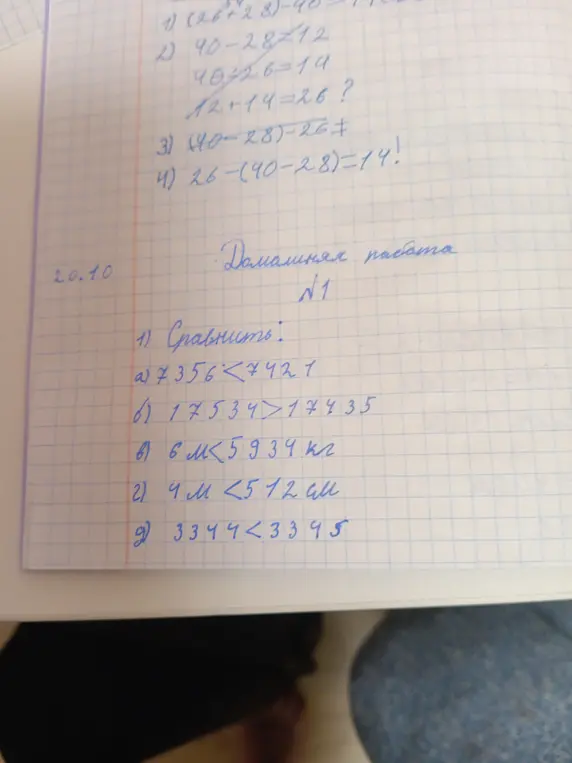 1) (26+28)-40=14
2) 40-28=12
40-26=14
12+14=26?
3) (40-28)-26≠
4) 26-(40-28)=14!
20.10
Домашняя работа
№1
1) Сравнить:
а) 7356<7421
б) 17534>17435
в) 6м<5934кг
г) 4м<512см
д) 3344<3345